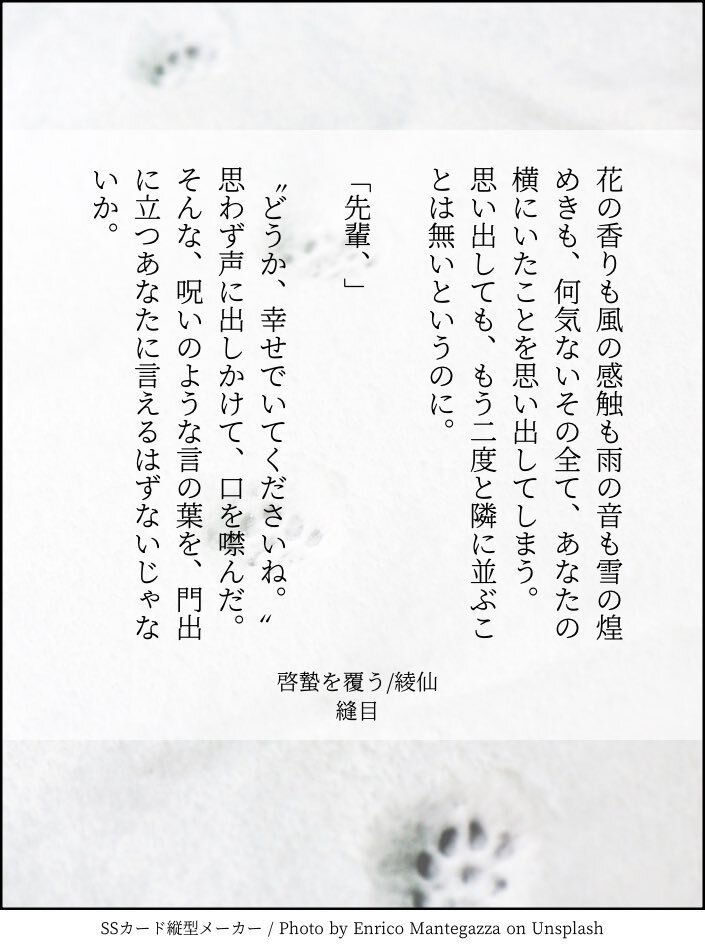 花の香りも風の感触も雨の音も雪の煌
めきも、何気ないその全て、あなたの
横にいたことを思い出してしまう。
思い出しても、もう二度と隣に並ぶこ
とは無いというのに。
「先輩、」
〝どうか、幸せでいてくださいね。〟
思わず声に出しかけて、口を噤んだ。
そんな、呪いのような言の葉を、門出
に立つあなたに言えるはずないじゃな
いか。
啓蟄を覆う/綾仙
縫目
SSカード縦型メーカー / Photo by Enrico Mantegazza on Unsplash